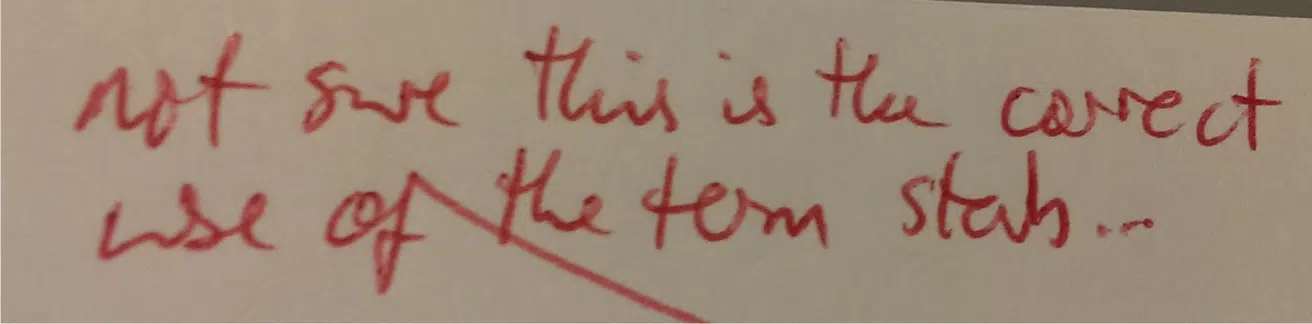 not sure this is the correct
use of the term stab...